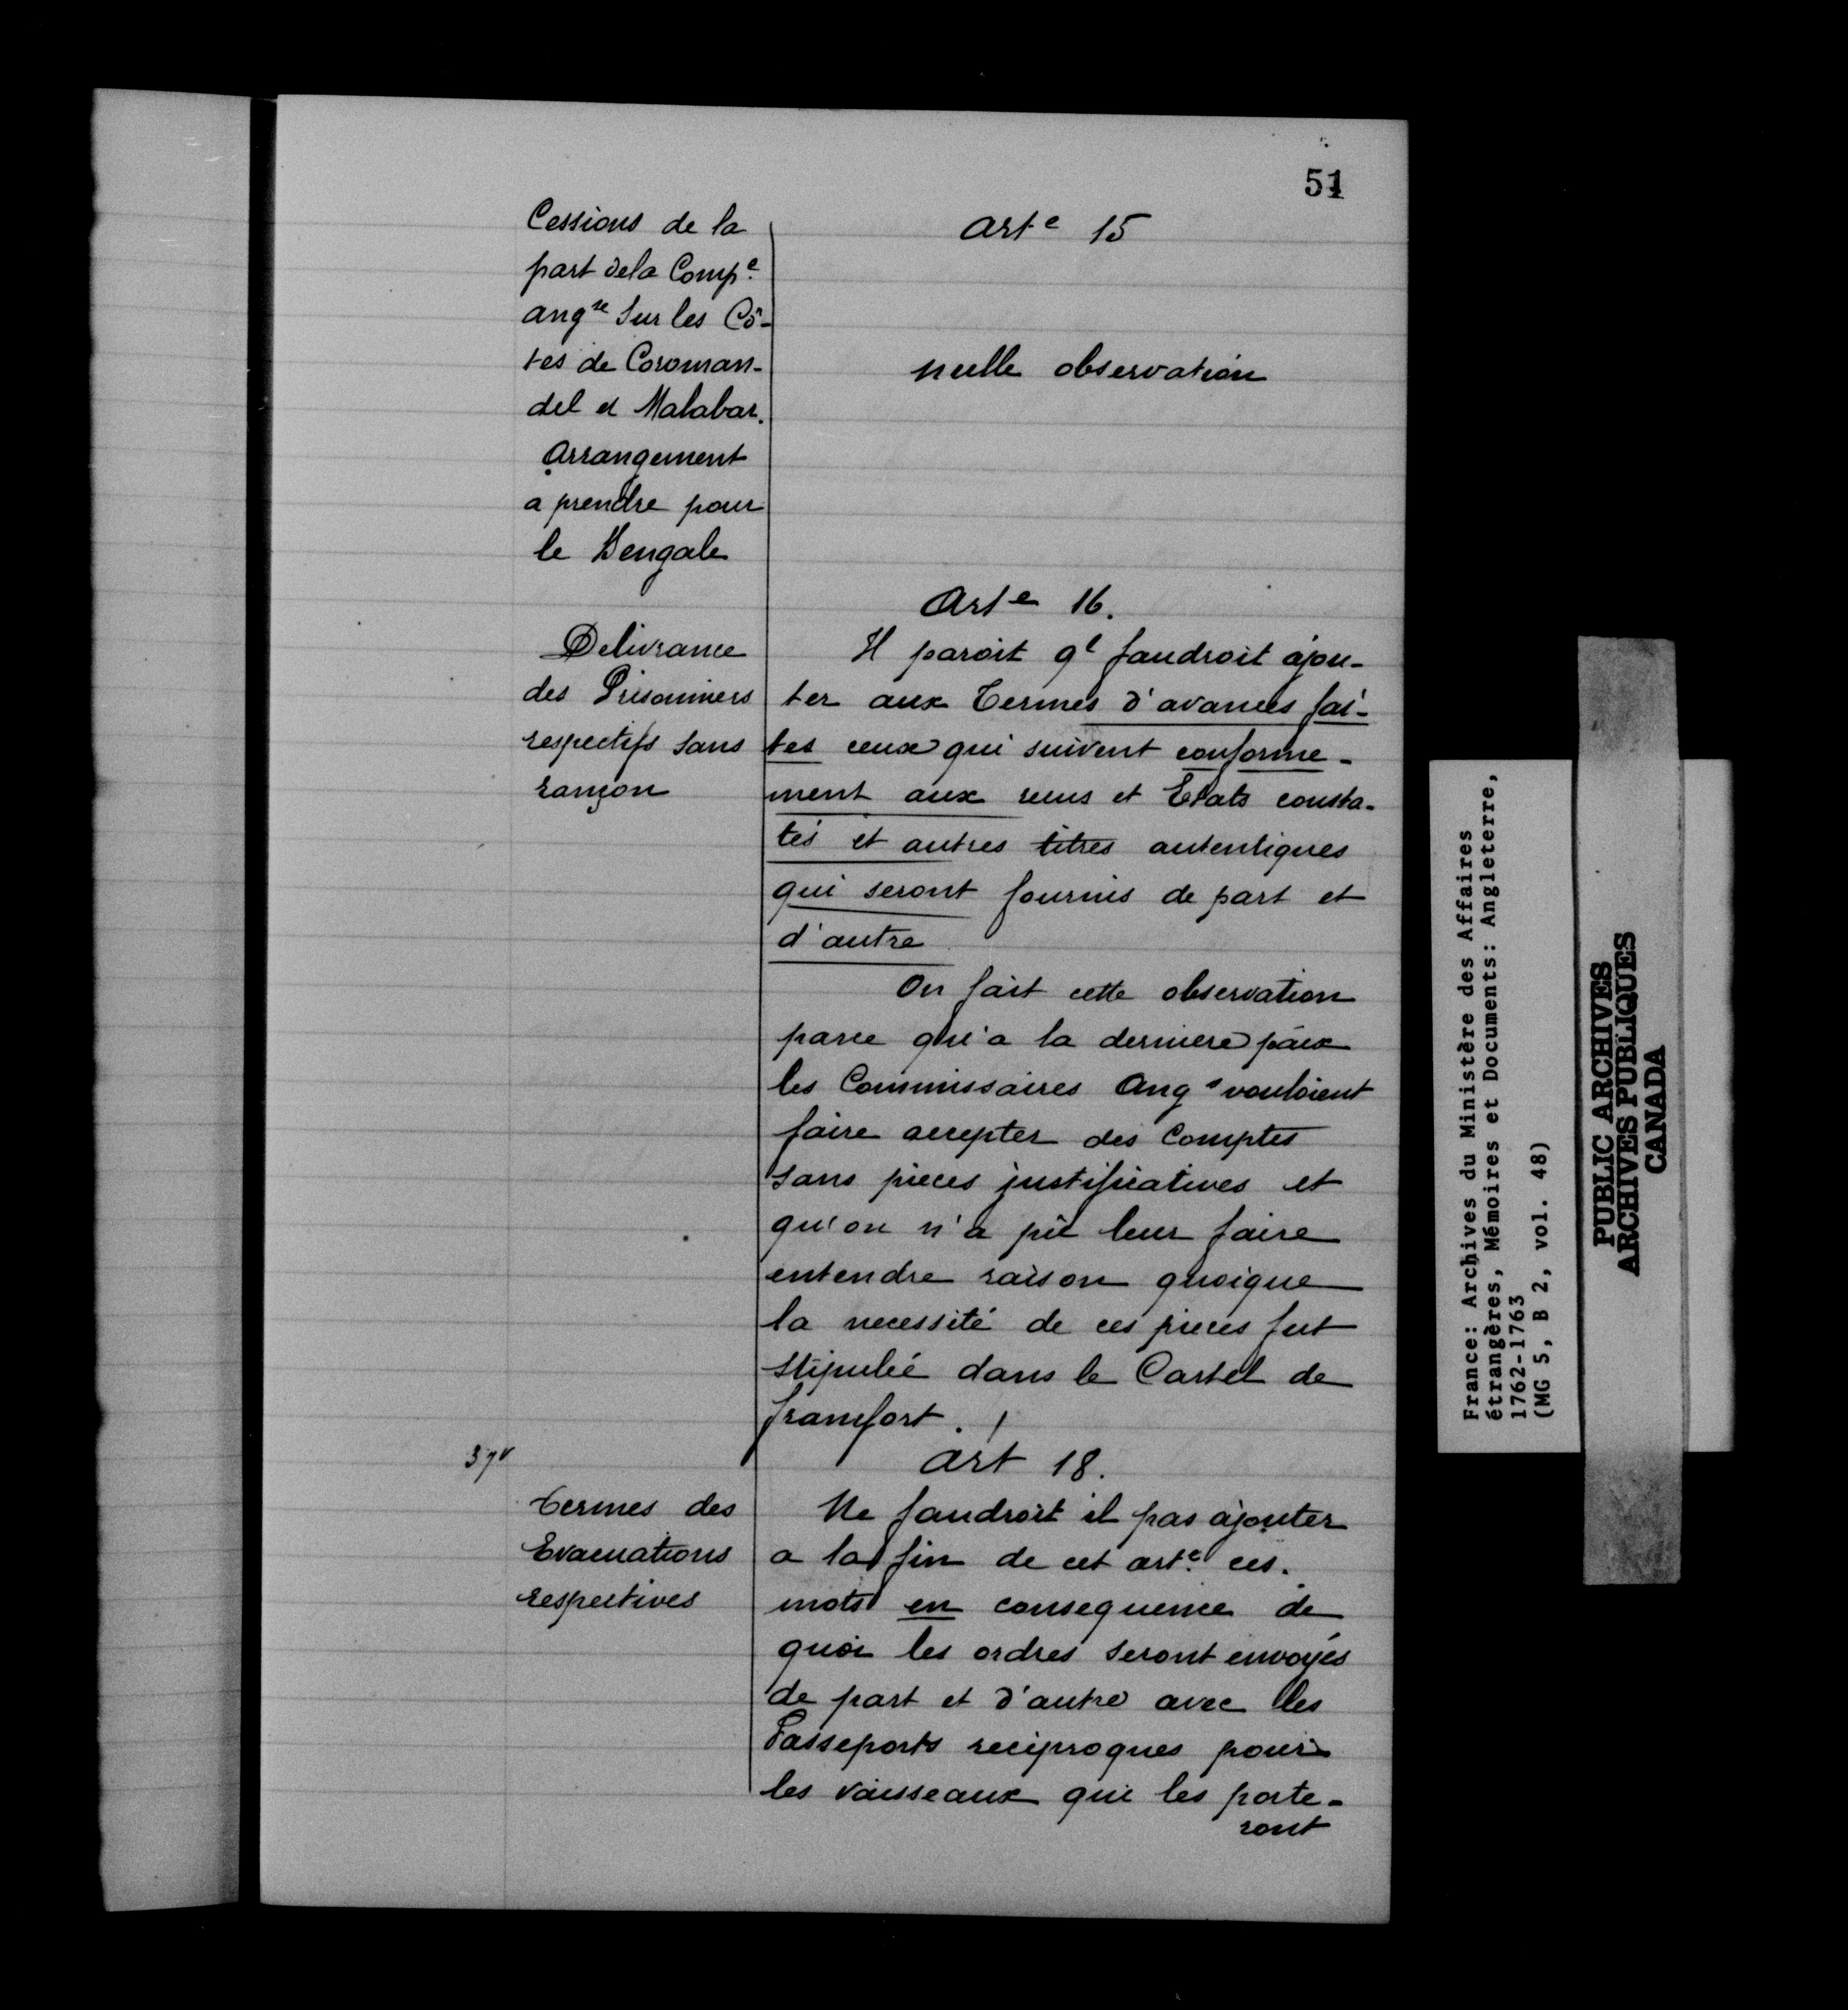 51
Cessions de la
part de la Comp.e
angse sur les Cô-
tes de Coroman-
del et Malabar.
Arrangement
a prendre pour
le Bengale
arte 15
nulle observation
Delivrance
des Prisonniers
respectifs sans
rançon
Arte 16.
Il paroit ql faudroit ajou-
ter aux Termes d'avances fai-
tes ceux qui suivent conforme-
ment aux recus et Etats consta-
tés et autres titres autentiques
qui seront fournis de part et
d'autre
On fait cette observation
parce qu'a la derniere paix
les Commissaires Angs vouloient
faire accepter des Comptes
sans pieces justificatives et
qu'on n'a pû leur faire
entendre raison quoique
la necessité de ces pieces fut
stipulée dans le Cartel de
francfort.
37v
Termes des
Evacuations
respectives
art 18.
Ne faudroit il pas ajouter
a la fin de cet art.e ces
mots en consequence de
quoi les ordres seront envoyés
de part et d'autre avec les
Passeports reciproques pour
les vaisseaux qui les porte-
ront
France: Archives du Ministère des Affaires
étrangères, Mémoires et Documents: Angleterre,
1762-1763
(MG 5, B 2, vol. 48)
PUBLIC ARCHIVES
ARCHIVES PUBLIQUES
CANADA